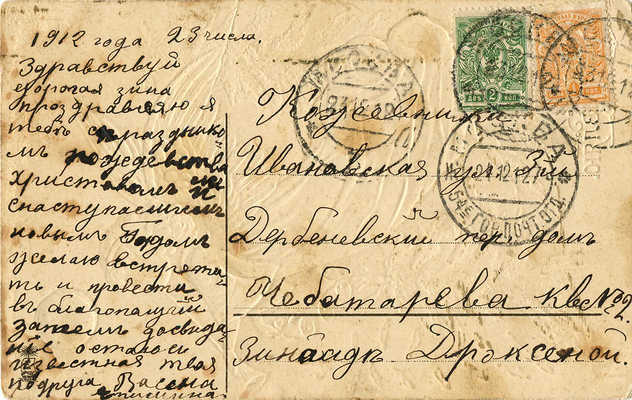 1912 года 23 числа.
Здравствуй
дорогая зина
поздравляю я
тебя с праздником
мъ рождества
христовамъ и
снаступающемъ
новымъ Годомъ
желаю встрети
ть и провести
въ благопалучій
Затемъ досвида
ніе осталось
известная твоя
подруга Васена
Кожевники
Ивановская ул. 3й
Дербеневскій пер. домъ
Чебатарева кв. № 22.
Зинаидъ Дрэксеной.
МОСКВА
2 КОП